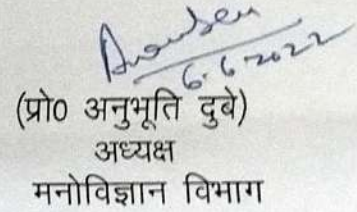 6.6.2022
(प्रो0 अनुभूति दुबे)
अध्यक्ष
मनोविज्ञान विभाग